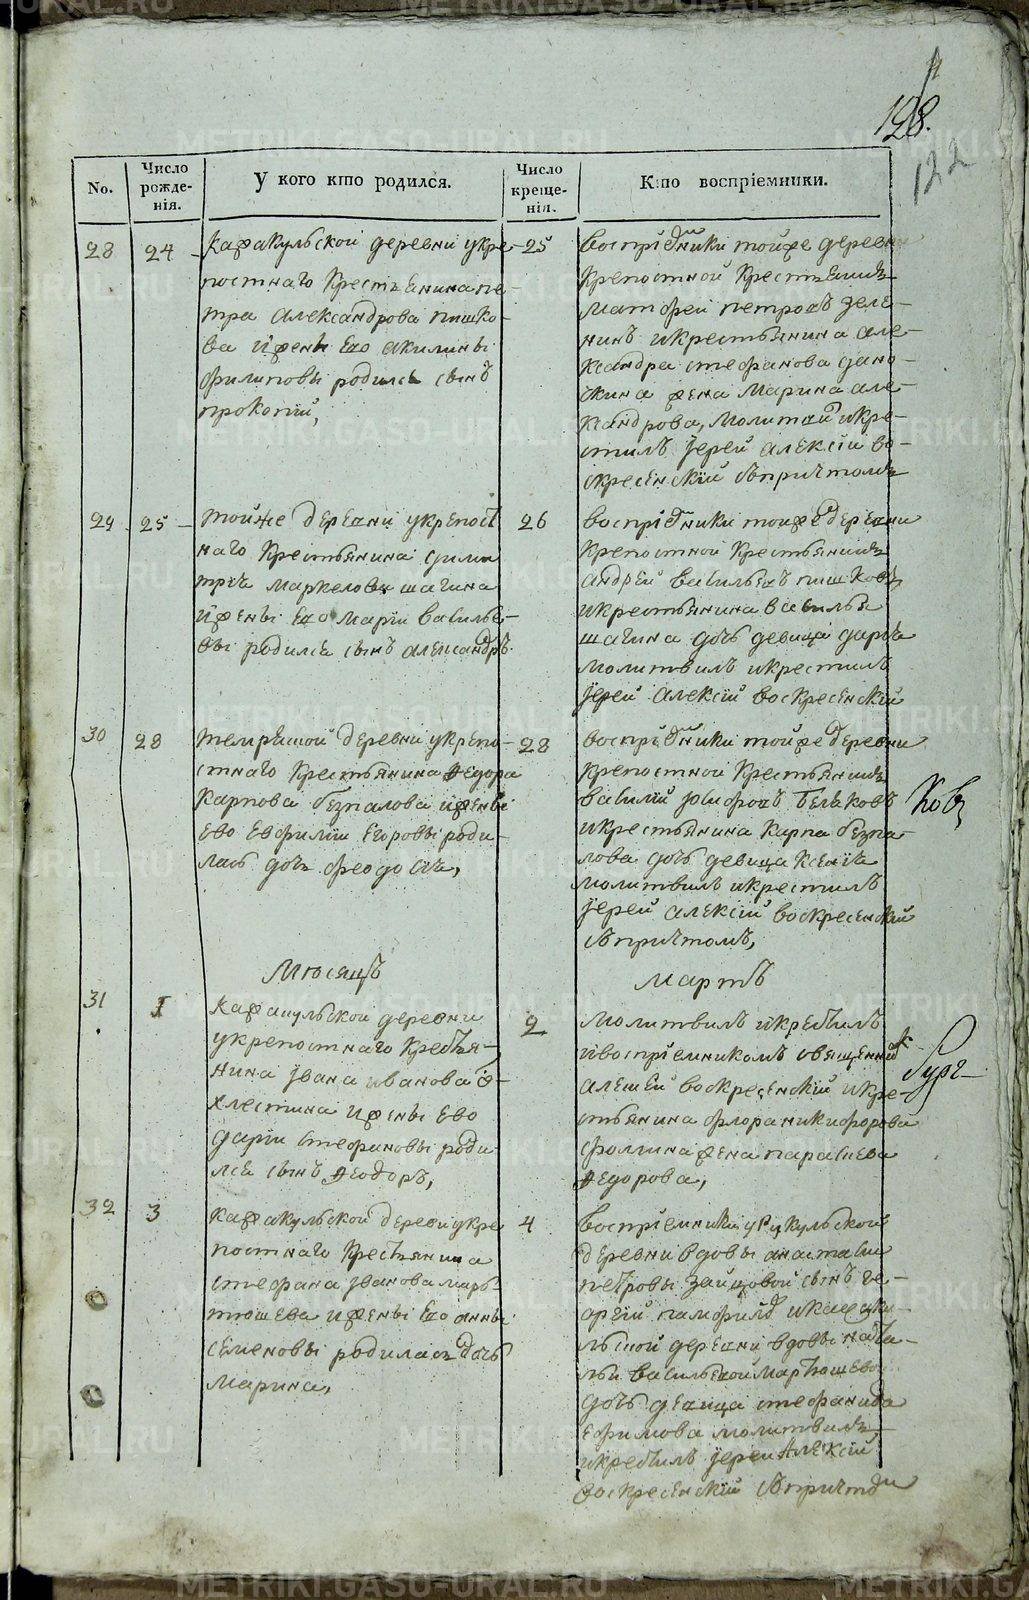 128.
122
No.
Число рожде-нія.
У кого кто родился.
Число креще-нія.
Кто воспріемники.
28
24
Кажакульской деревни укре-
постнаго Крестьенина пе-
тра александрова пишко-
ва и жены Его акилины
филиповы родилсь сынъ
прокопий,
25
воспріемники тойже деревни
Крепостной Крестьенинъ
матфей петровъ зеле-
нинъ и крестьянина але-
ксандра стефанова
жена Марина але-
ксандрова, молитвилъ и кре-
стилъ Іерей алексій во-
скресенскій съпричтомъ
29
25
тойже деревни у крепост
наго Крестьянина
маркелова шагина
и жены Его марии василье-
вы родилса сынъ александръ.
26
воспріемники тойже деревни
Крепостной Крестьянинъ
андрей васильевъ пишковъ
и крестьянина василья
шагина дочь девица дарья
молитвилъ и крестилъ
Іерей алексій воскресенскій
30
28
деревни у крепо-
стнаго Крестьянина Федора
Карпова безпалова и жены
Ево Евфимии Егоровы роди-
лась дочь феодосия,
28
воспріемники тойже деревни
Крепостной Крестьянинъ
василий Бельковъ
и крестьянина Карпа безпа-
лова дочь девица Ксения
молитвилъ и крестилъ
Іерей алексій воскресенский
съпричтомъ,
Ков
Месяцъ
мартъ
31
1
Кажакульской деревни
у крепостнаго Крестья-
нина Ивана иванова
хлестина и жены Ево
дарии стефановы роди-
лса сынъ Феодоръ,
2
молитвилъ и крестилъ
и воспріемникомъ священникъ
алексей воскресенский и кре-
стьянина флора никифорова
фомина жена параскева
Федорова,
32
3
Кажакульской деревни у кре
постнаго Крестьянина
стефана Іванова март-
тюшева и жены Его анны
семеновы родилась дочь
марина,
4
воспріемники
деревни вдовы анастасии
петровы зайцовой сынъ ге-
оргий и кажаку-
льской деревни вдовы ната-
льи васильевой мартюшево
дочь девица стефанида
Ефимова молитвилъ
и крестилъ Іерей Алексій
воскресенский съпричтом